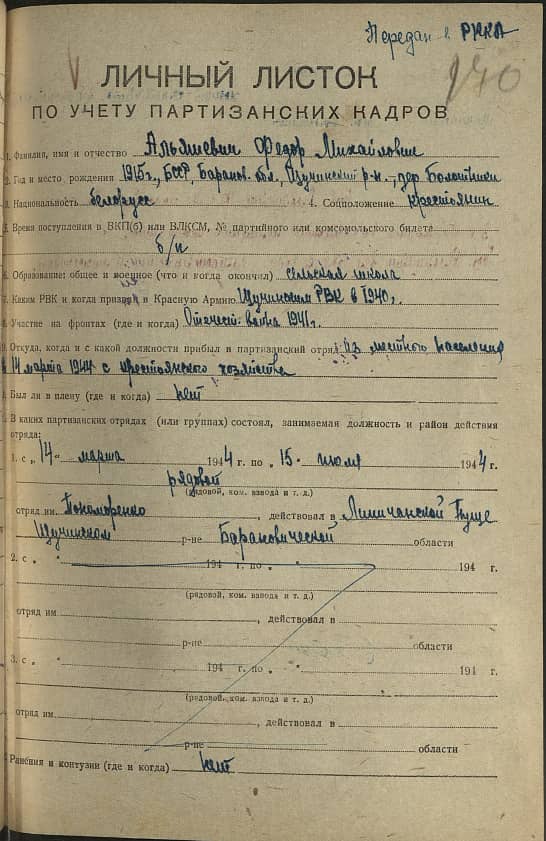 Передан в РККА
240
V ЛИЧНЫЙ ЛИСТОК
ПО УЧЕТУ ПАРТИЗАНСКИХ КАДРОВ
1. Фамилия, имя и отчество Альяшевич Федор Михайлович
2. Год и место рождения 1915г., БССР, Баранов. обл., Щучинский р-н., дер
3. Национальность белорусс 4. Соцположение крестоянин
5. Время поступления в ВКП(б) или ВЛКСМ, № партийного или комсомольского билета
б/п
6. Образование: общее и военное (что и когда окончил) сельская школа
7. Каким РВК и когда призван в Красную Армию Щучинским РВК в 1940г.
8. Участие на фронтах (где и когда) Отечест. война 1941г.
9. Откуда, когда и с какой должности прибыл в партизанский отряд из местного населения
в 14 марта 1944 с крестоянского хозяйства
Был ли в плену (где и когда) нет
В каких партизанских отрядах (или группах) состоял, занимаемая должность и район действия
отряда:
1. с „14" марта 1944 г. по „15" июля 1944 г.
рядовой
(рядовой, ком. взвода и т. д.)
отряд им. Пономоренко, действовал в Липичанской Пуще
Щучинском р-не Барановической области
2. с „ " 194 г. по „ " 194 г.
(рядовой, ком. взвода и т. д.)
отряд им , действовал в
р-не области
3. с „ " 194 г. по „ " 194 г.
(рядовой, ком. взвода и т. д.)
отряд им. , действовал в
р-не области
Ранения и контузии (где и когда) нет